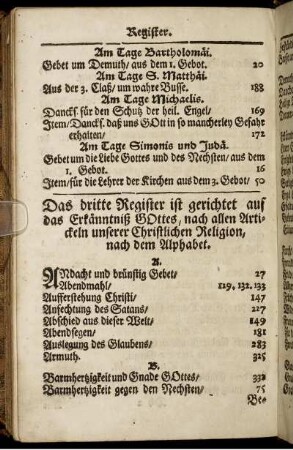 Register.
Am Tage Bartholomäi.
Gebet um Demuth/ aus dem 1. Gebot. 20
Am Tage S. Matthäi.
Aus der 3. Claß/ um wahre Busse. 188
Am Tage Michaelis.
Dancks. für den Schutz der heil. Engel/ 169
Item/ Dancks. daß uns GOtt in so mancherley Gefahr
erhalten/ 172
Am Tage Simonis und Judä.
Gebet um die Liebe Gottes und des Nechsten/ aus dem
1. Gebot. 16
Item/ für die Lehrer der Kirchen aus dem 3. Gebot/ 50
Das dritte Register ist gerichtet auf
das Erkänntniß GOttes, nach allen Arti-
ckeln unserer Christlichen Religion,
nach dem Alphabet.
A.
ANdacht und brünstig Gebet/ 27
Abendmahl/ 129, 132, 133
Aufferstehung Christi/ 147
Anfechtung des Satans/ 227
Abschied aus dieser Welt/ 149
Abendsegen/ 181
Auslegung des Glaubens/ 283
Armuth. 325
B.
Barmhertzigkeit und Gnade GOttes/ 332
Barmhertzigkeit gegen den Nechsten/ 75
Be-